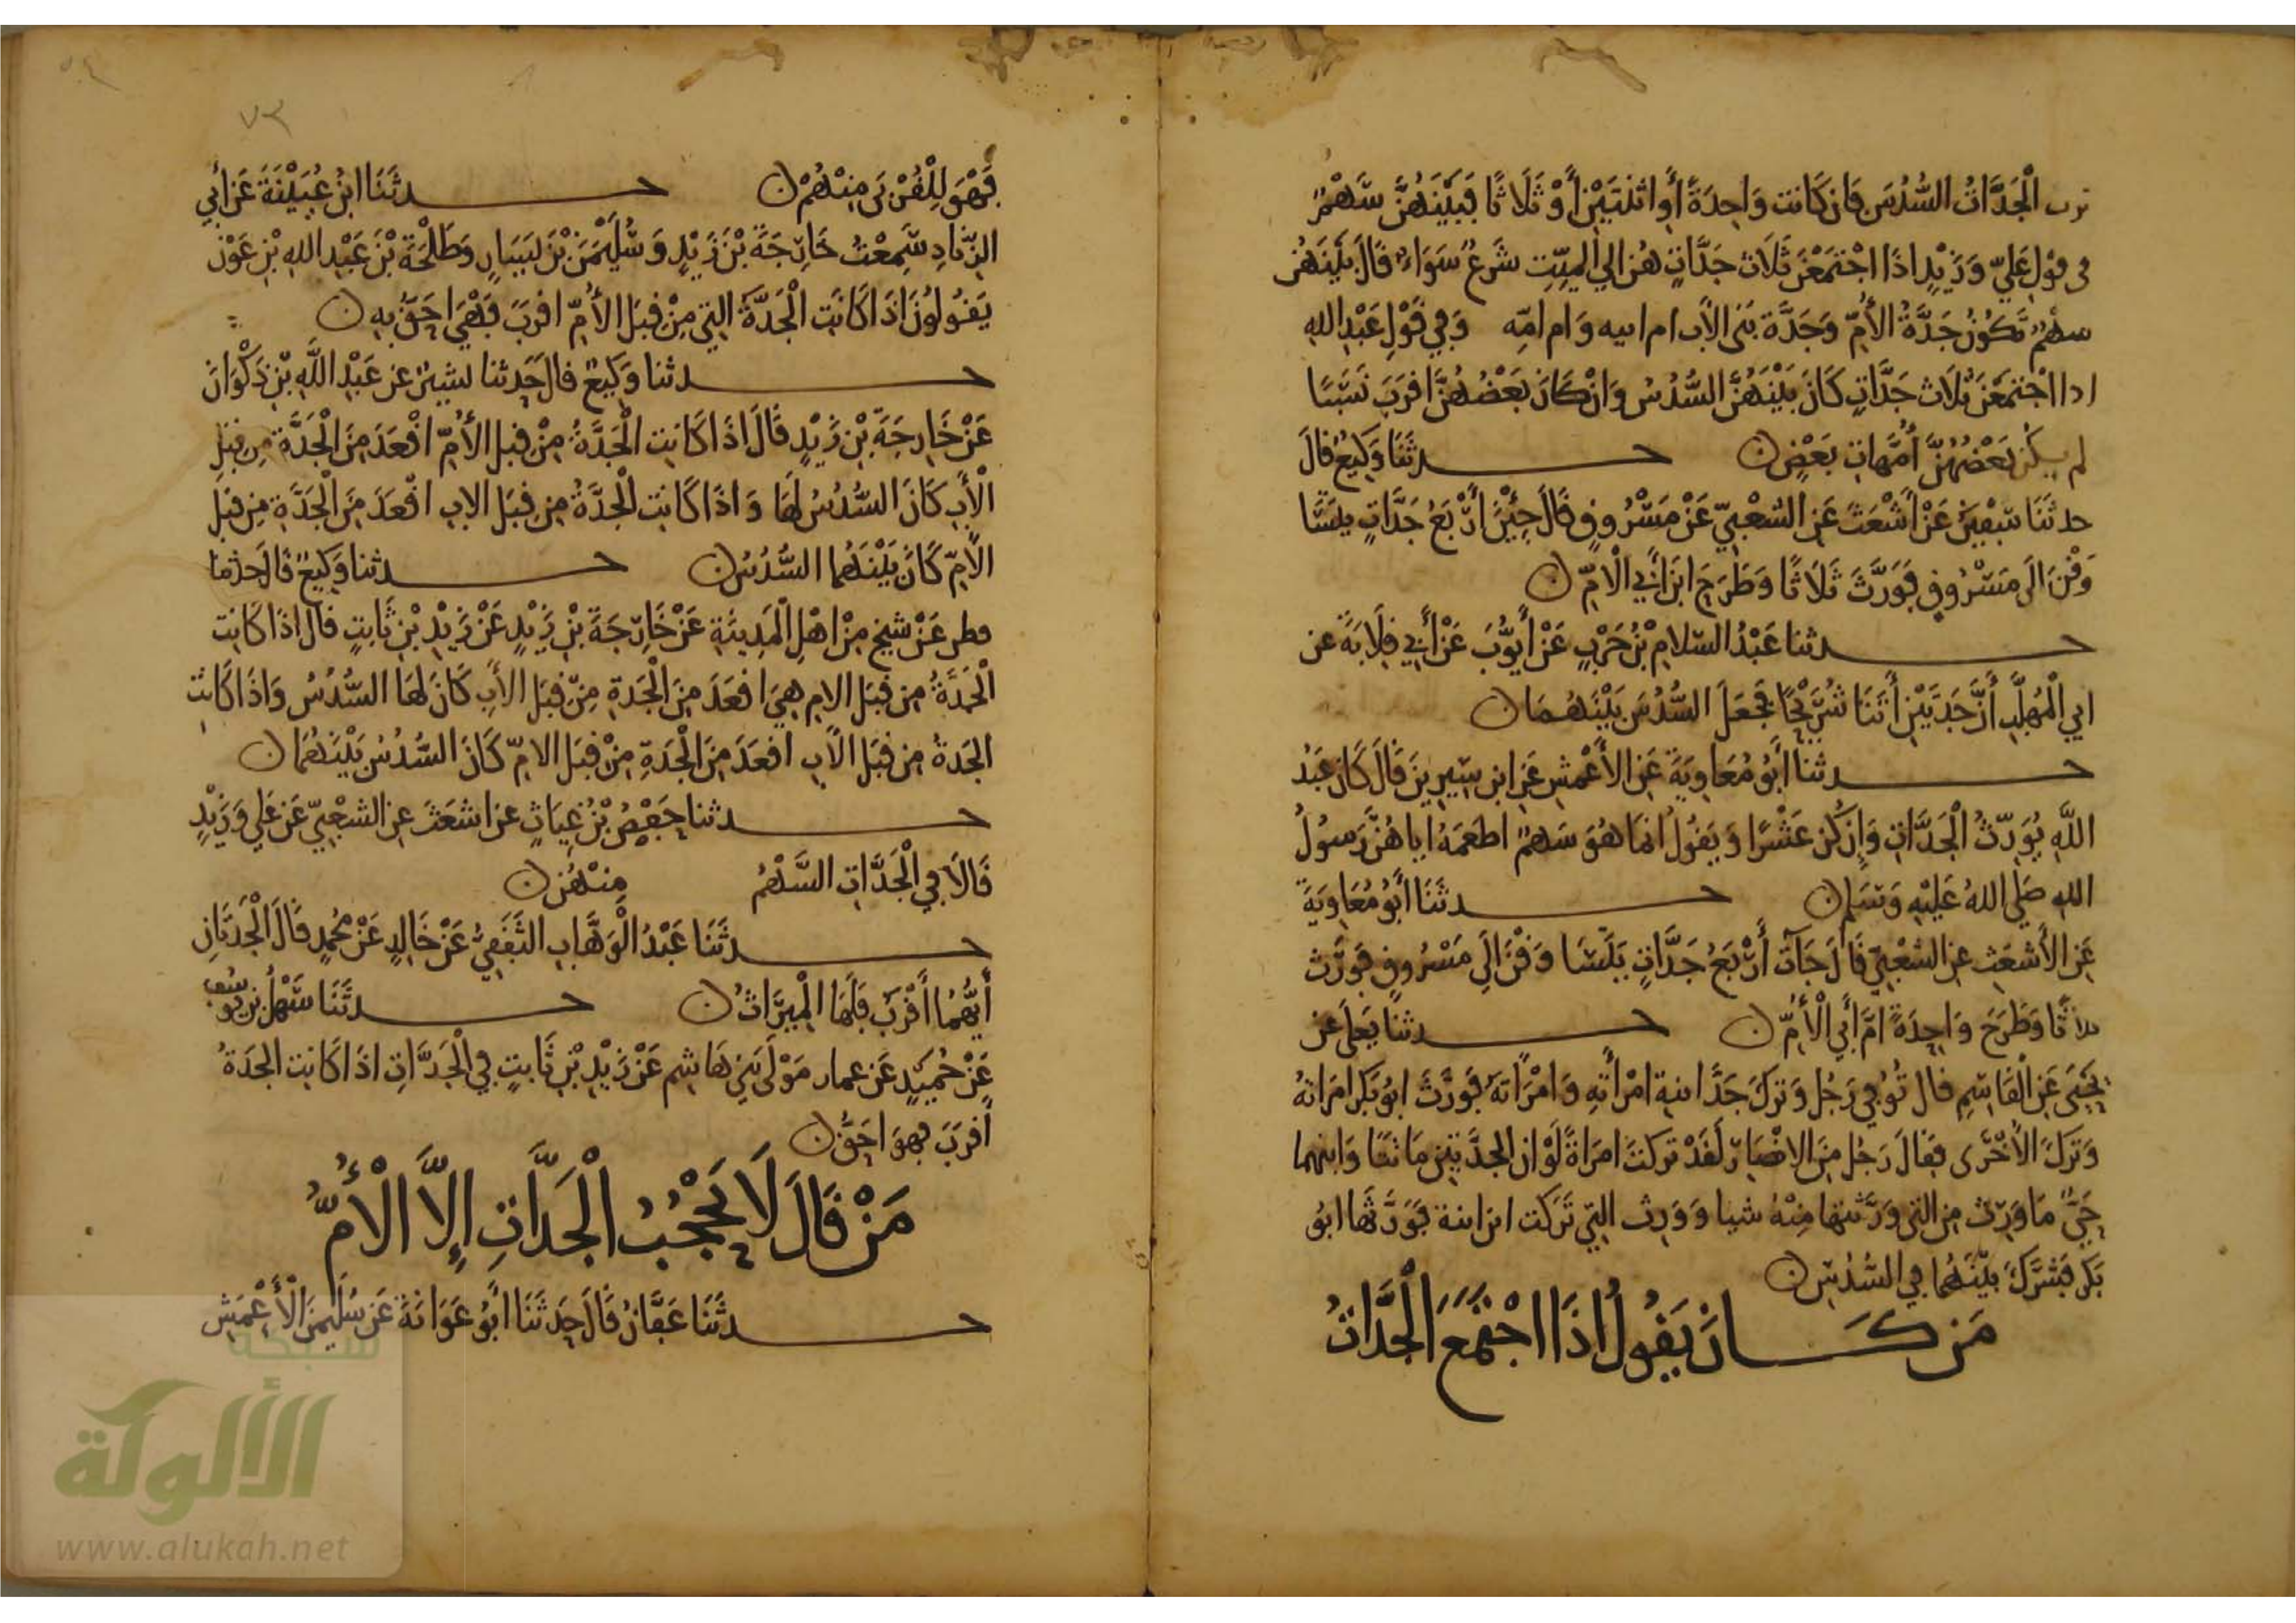 ترث الْجَدَّاتُ السُّدُسَ فَإِن كَانَت وَاحِدَةً أَوِ اثنَتَيْنِ أَوْ ثَلَاثًا فَبَيْنَهُنَّ سَهْمٌ
في قول عَليّ وَزَيْدٍ اذَا اجْتَمَعْنَ ثَلَاث جَدَّاتٍ هُنَّ الي الميِّتِ شَرعٌ سَوَاءٌ قَالَ بَيْنَهُنَّ
سهمٌ تَكُونُ جَدَّةُ الأُمِّ وَجَدَّة بَنى الأب ام ابيه وَام امِّه وَفِي قَوْلِ عَبْدِ اللهِ
اذا اجْتَمَعْنَ ثَلَاث جَدَّاتٍ كَانَ بَيْنَهُنَّ السُّدُسُ وَانْ كَانَ بَعْضُهُنَّ اقرَبَ نَسَبًا
لم يكُن بَعْضُهُنَّ أُمَّهَاتِ بَعْضٍ ن حدثَنَا وَكِيعٌ قَالَ
حدثَنَا سفْيٰنُ عَنْ أَشْعَثَ عَنِ الشَّعْبِيِّ عَنْ مَسْرُوقٍ قَالَ جِئْنَ أَرْبَعُ جَدَّاتٍ يتسَا
وَقْنَ الَى مَسْرُوقٍ فَوَرَّثَ ثَلَاثًا وَطَرَحَ ابنَ أَبِي الْأُمِّ ن
حدثنا عَبْدُ السَّلامِ بْنُ حَرْبٍ عَنْ أَيُّوبَ عَنْ أَبِي قِلَابَةَ عن
ابي الْمُهَلَّبِ أَنَّ جَدَّتَيْنِ أَتَتَا شُرَيْحًا فَجَعَلَ السُّدُسَ بَيْنَهُمَا ن
حدثنا أَبُو مُعَاوِيَةَ عَنِ الأَعْمَشِ عَنِ ابن سِيرِينَ قَالَ كَانَ عَبْدُ
اللَّهِ يُوَرِّثُ الْجَدَّاتِ وَإِن كُنَّ عَشْرًا وَيَقُولُ انما هُوَ سَهمٌ اطعَمَهُ اياهُنَّ رَسُولُ
اللهِ صَلى اللهُ عَلَيْهِ وَسَلم ن حدثَنَا أَبُو مُعَاوِيَةَ
عَنِ الأَشعَثِ عنِ الشَّعْبِيِّ قَالَ جَآت أَرْبَعُ جَدَّاتٍ يَتَسَا وَقْنَ الَي مَسْرُوقٍ فَوَرَّث
ثلاثًا وَطَرَحَ وَاحِدَةً امَّ أَبِي الْأُمِّ ن حدثنا يَعْلَى عَن
يَحْيَى عَنِ الْقَاسِمِ قال تُوُفِي رَجُل وَتَرَكَ جَدَّا ابنة امْرأَتِهِ وَامْرَاتهُ فَوَرَّثَ ابُو بَكر امرَاتهُ
وَتَرَكَ الأُخْرَى فَقَالَ رَجُل مِنَ الانصَار لَقَدْ تركتَ امرَاةً لَوْ ان الجدَّتين مَاتتَا وَابنهما
حَيٌّ مَا وَرِث مِن التي وَرَّثتها مِنْهُ شيا وَوَرِث التِي تَرَكت ابن ابنة فَوَرَّثَها ابُو
بَكر فَشَرَّكَ بَيْنَهُمَا فِي السُّدُسِ ن
مَن كَــانَ يَقُولُ اذَا اجْتَمَعَ الْجَدَّاتُ
فَهْوَ لِلْقُرْبَى مِنْهُمْ ن حدثَنَا ابنُ عُيَيْنَةَ عَن أبي
الزِّنَادِ سَمِعْتُ خَارِجَةَ بْنَ زَيْدٍ وَسُلَيْمٰنَ بْنَ يَسَارٍ وَطَلْحَةَ بْنَ عَبْدِ اللهِ بْنِ عَوْفٍ
يَقُولُونَ اذَا كَانَتِ الْجَدَّةُ التِي مِنْ قِبَلِ الأُمِّ اقرَبَ فَهْيَ احَقُّ بِهِ ن
حدثنا وَكِيعٌ قالَ حَدثنا بشيرٌ عن عَبْدِ اللَّهِ بْنِ ذَكْوَانَ
عَنْ خَارِجَةَ بْنِ زَيْدٍ قَالَ اذَا كَانَتِ الْجَدَّةُ مِنْ قِبلِ الأُمِّ اقْعَدَ مِنَ الْجَدَّةِ مِن قِبَلِ
الْأَبِ كَانَ السُّدُسُ لَهَا وَاذَا كَانَت الْجَدَّةُ مِن قِبَل الاب اقْعَدَ مِنَ الْجَدَّةِ مِن قِبَل
الأمِّ كَانَ بَيْنَهُمَا السُّدُسُ ن حدثنا وَكِيعٌ قَالَ حدثنا
فطر عَنْ شيخٍ مِنْ اهْلِ الْمَدِينَةِ عَنْ خَارِجَةَ بْنِ زَيْدٍ عَنْ زَيْدِ بْنِ ثَابِتٍ قال اذَا كَانَت
الْجَدَّةُ مِن قِبَل الام هِيَ اقعَدَ مِنَ الْجَدَّةِ مِنْ قِبَل الأَبِ كَانَ لهَا السُّدُسُ وَاذَا كَانَت
الجَدةُ مِن قِبَل الأب اقعَدَ مِنَ الْجَدَّةِ مِنْ قِبَل الامّ كَانَ السُّدُس بَيْنَهُمَا ن
حدثنا حَفْصُ بْنُ غِيَاثٍ عن اشعَثَ عنِ الشعْبِيِّ عَن عَلي وَزَيْدٍ
قَالَا فِي الْجَدَّاتِ السَّهْمُ مِنْهُن ن
حدثَنَا عَبْدُ الْوَهَّابِ الثَقَفِيُّ عَنْ خَالِدٍ عَنْ مُحَمدٍ قَالَ الْجَدَّتَانِ
أَيُّهُمَا أَقْرَبُ فَلَهَا الْمِيرَاثُ ن حدثَنَا سَهْلُ بنُ يُوسُفَ
عَنْ حُمَيْدٍ عَن عمار مَوْلَى بَنِي هَاشِم عَنْ زَيْدِ بْنِ ثَابِتٍ فِي الْجَدَّاتِ اذَا كَانت الجدَةُ
أقرَبَ فهوَ احَقُّ ن
مَنْ قَالَ لَا يَحْجُبُ الْجَدَّاتِ إِلَّا الْأُمُّ
حدثَنَا عَفَّانُ قَالَ حَدثَنَا أَبُو عَوَانَةَ عَن سُلَيمٰنَ الْأَعْمَشِ
٧٣
شبكة
الألوكة
www.alukah.net